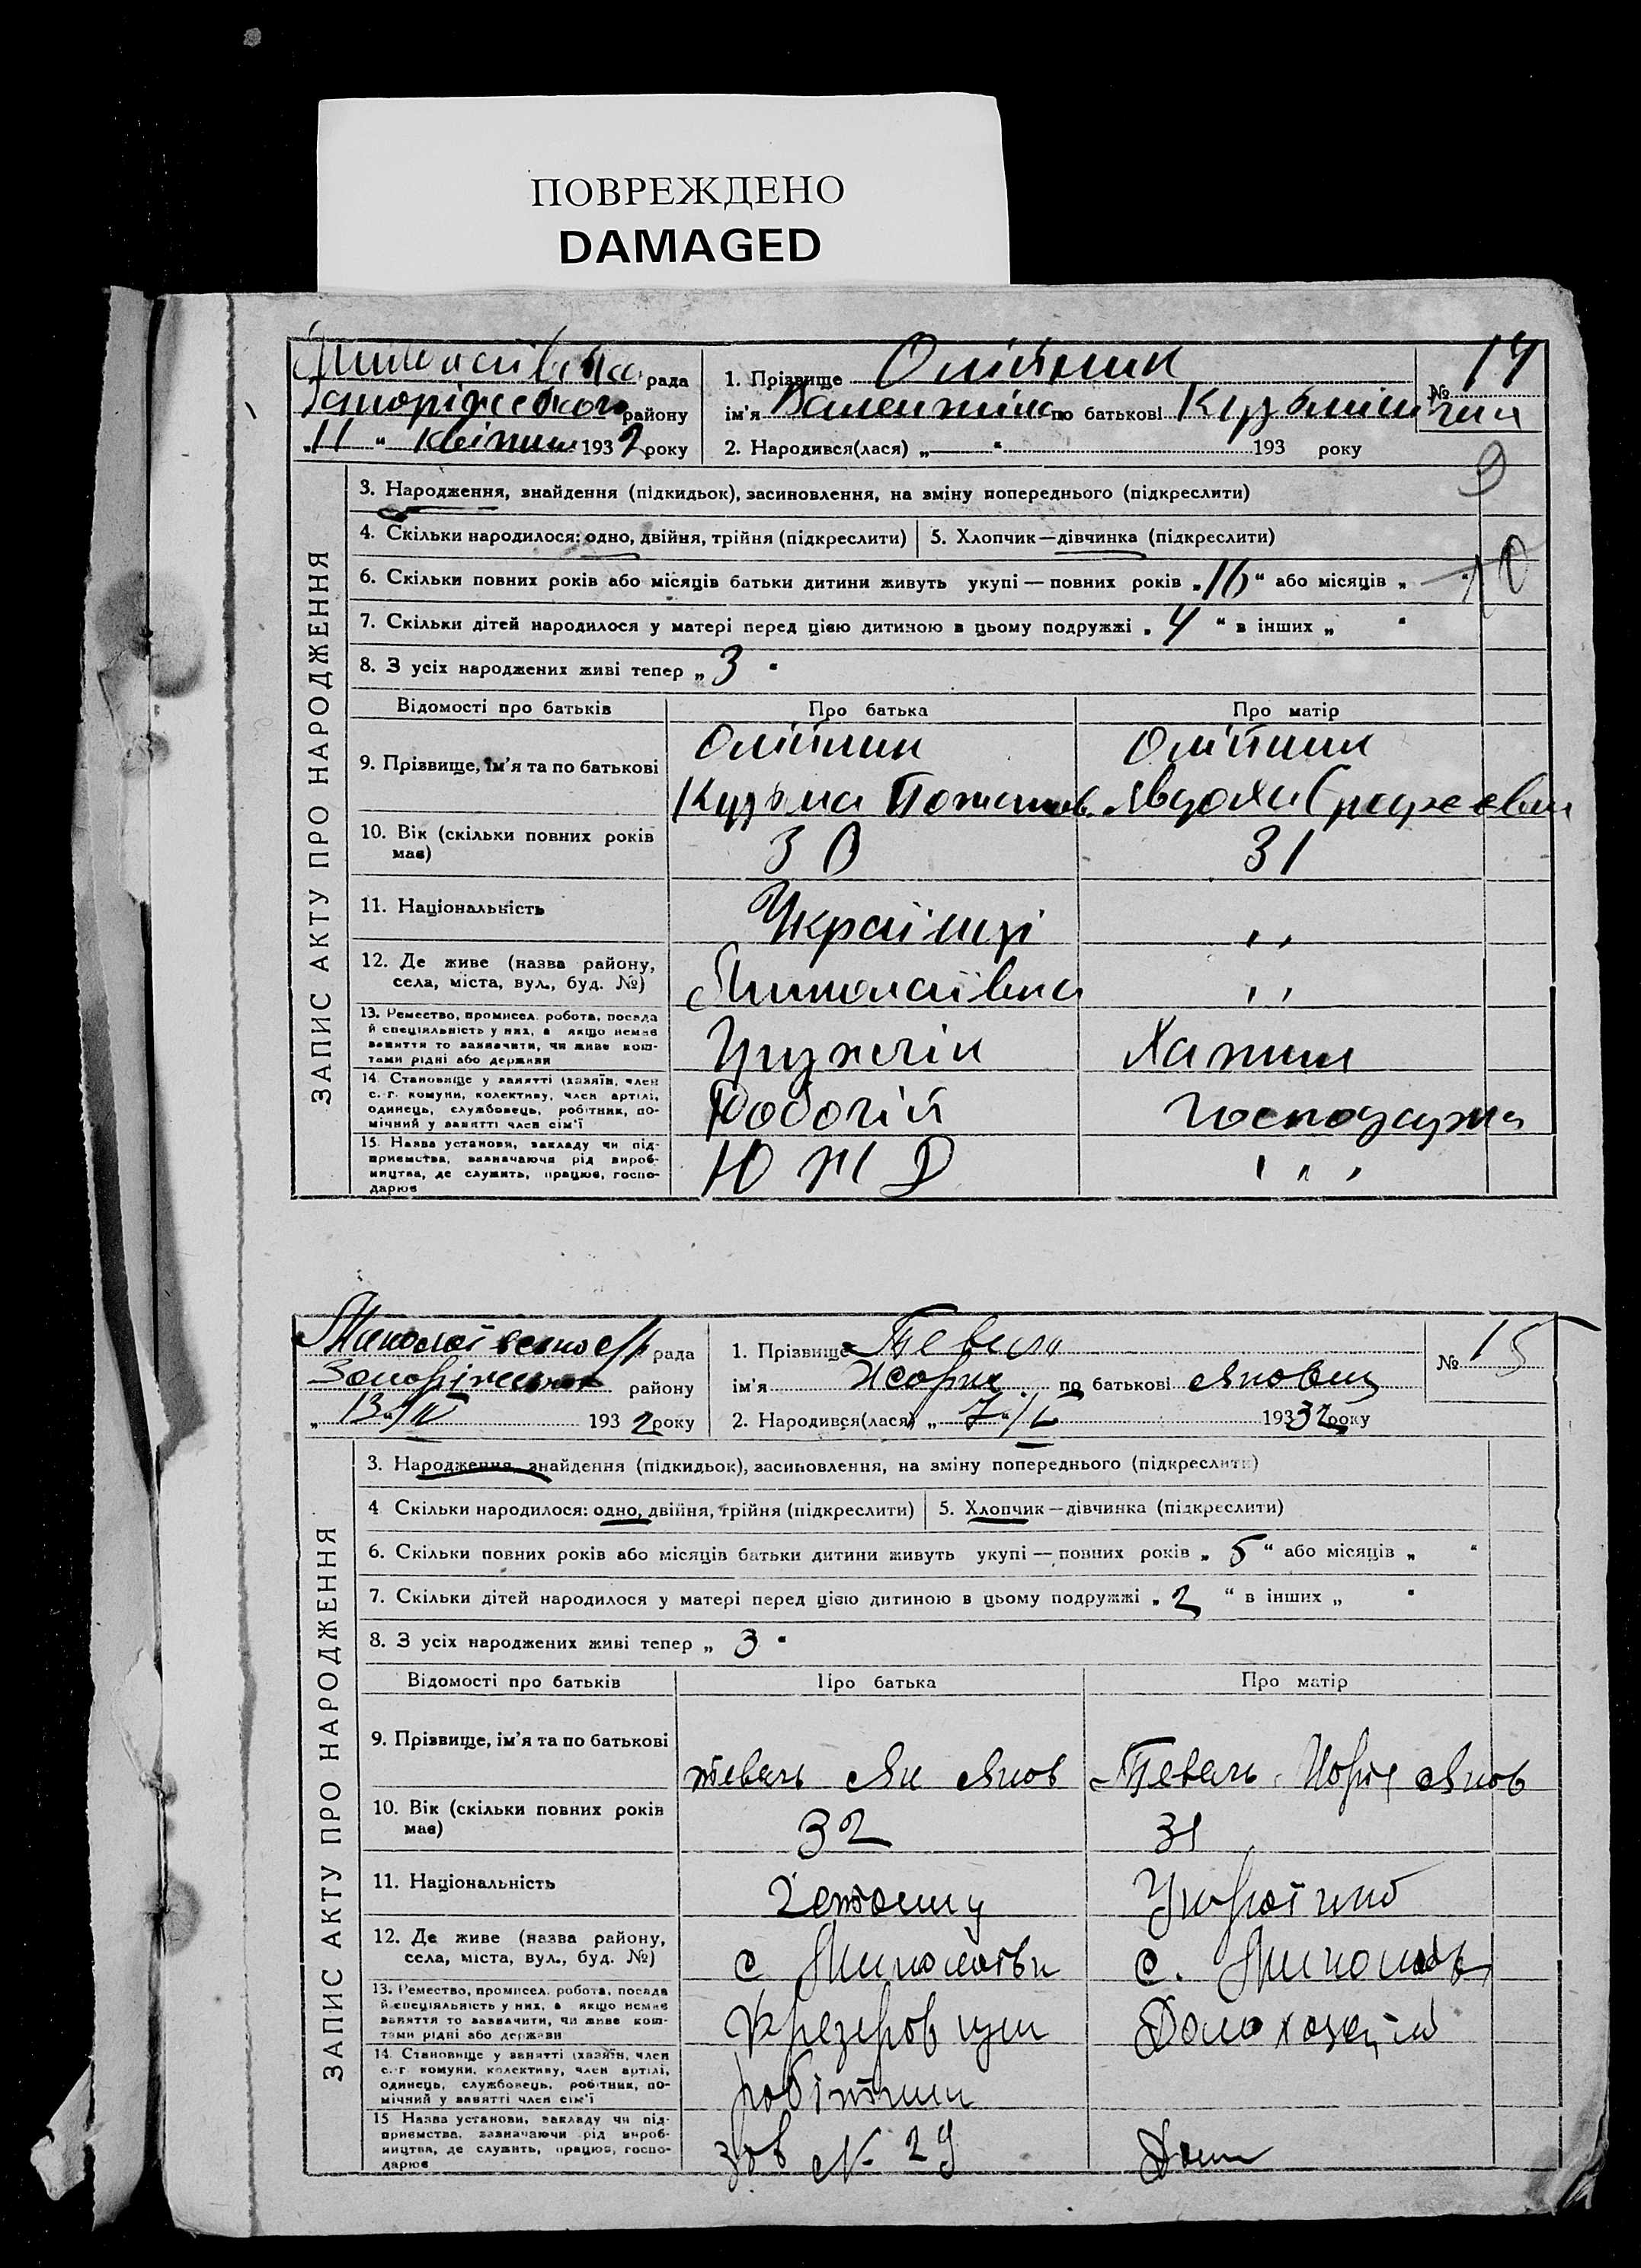 ПОВРЕЖДЕНО
DAMAGED
рада
Запоріжського району
„11“ квітня 1932 року
1. Прізвище Олійник
ім'я Валентина по батькові Кузьмінична
№ 14
2. Народився(лася) „ “ 193 року
ЗАПИС АКТУ ПРО НАРОДЖЕННЯ
3. Народження, знайдення (підкидьок), засиновлення, на зміну попереднього (підкреслити)
4. Скільки народилося: одно, двійня, трійня (підкреслити)
5. Хлопчик—дівчинка (підкреслити)
6. Скільки повних років або місяців батьки дитини живуть укупі — повних років „10“ або місяців „—“
7. Скільки дітей народилося у матері перед цією дитиною в цьому подружжі „4“ в інших „ “
8. З усіх народжених живі тепер „3“
Відомості про батьків
Про батька
Про матір
9. Прізвище, ім'я та по батькові
Олійник
Кузьма
Олійник
Явдоха
10. Вік (скільки повних років має)
30
31
11. Національність
Українці
„
12. Де живе (назва району, села, міста, вул., буд. №)
Миколаївка
„
13. Ремество, промисел. робота, посада
й спеціяльність у них, а якщо немає
заняття то зазначити, чи живе кош-
тами рідні або держави
Грузчік
Хатня
14. Становище у занятті (хазяїн, член
с.-г. комуни, колективу, член артілі,
одинець, службовець, робітник, по-
мічний у занятті член сім'ї
Робочій
Господарка
15. Назва установи, закладу чи під-
приємства, зазначаючи рід вироб-
ництва, де служить, працює, госпо-
дарює
Ю Ж Д
„ „
рада
району
„13“ IV 1932 року
1. Прізвище
ім'я Жорж по батькові Янович
№ 15
2. Народився(лася) „7“ 193 32 року
ЗАПИС АКТУ ПРО НАРОДЖЕННЯ
3. Народження, знайдення (підкидьок), засиновлення, на зміну попереднього (підкреслити)
4 Скільки народилося: одно, двійня, трійня (підкреслити)
5. Хлопчик—дівчинка (підкреслити)
6. Скільки повних років або місяців батьки дитини живуть укупі — повних років „5“ або місяців „ “
7. Скільки дітей народилося у матері перед цією дитиною в цьому подружжі „2“ в інших „ “
8. З усіх народжених живі тепер „3“
Відомості про батьків
Про батька
Про матір
9. Прізвище, ім'я та по батькові
Ян Янов
Янов
10. Вік (скільки повних років має)
32
31
11. Національність
12. Де живе (назва району, села, міста, вул., буд. №)
с Миколаївк
с.
13. Ремество, промисел. робота, посада
й спеціяльність у них, а якщо немає
заняття то зазначити, чи живе кош-
тами рідні або держави
Фрезеровщик
14. Становище у занятті (хазяїн, член
с.-г. комуни, колективу, член артілі,
одинець, службовець, робітник, по-
мічний у занятті член сім'ї
робітник
15 Назва установи, закладу чи під-
приємства, зазначаючи рід вироб-
ництва, де служить, працює, госпо-
дарює
зав № 29